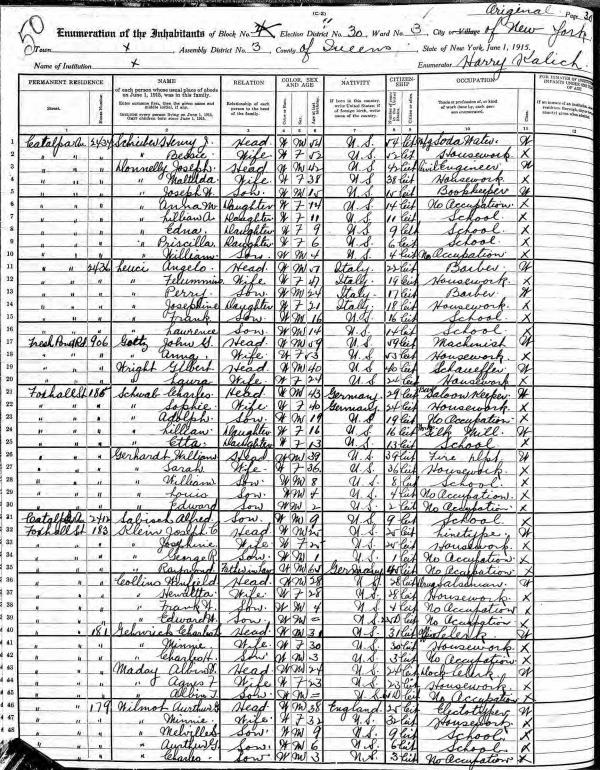 Original Page 30
50
Enumeration of the Inhabitants of Block No. 4 Election District No. 30, Ward No. 3, City or Village of New York
Town x Assembly District No. 3, County of Queens State of New York, June 1, 1915.
Name of Institution x Enumerator Harry Kalich
PERMANENT RESIDENCE NAME RELATION COLOR, SEX AND AGE NATIVITY CITIZENSHIP OCCUPATION
1 Catalpa Av 2434 Schieber Henry J. Head W M 54 U.S. 54 Cit Soda Water W
2 " " " Bessie Wife W F 52 U.S. 52 Cit Housework X
3 " " Donnelly Joseph Head W M 42 U.S. 42 Cit Civil Engineer W
4 " " " Matilda Wife W F 38 U.S. 38 Cit Housework X
5 " " " Joseph W. Son W M 15 U.S. 15 Cit Bookkeeper W
6 " " " Anna M. Daughter W F 14 U.S. 14 Cit No Occupation X
7 " " " Lillian A. Daughter W F 11 U.S. 11 Cit School X
8 " " " Edna Daughter W F 9 U.S. 9 Cit School X
9 " " " Priscilla Daughter W F 6 U.S. 6 Cit School X
10 " " " William Son W M 4 U.S. 4 Cit No Occupation X
11 " " 2436 Leuci Angelo Head W M 51 Italy 22 Cit Barber W
12 " " " Wife W F 47 Italy 19 Cit Housework X
13 " " " Perry Son W M 24 Italy 17 Cit Barber W
14 " " " Josephine Daughter W F 21 Italy 18 Cit Housework X
15 " " " Frank Son W M 16 U.S. 16 Cit School X
16 " " " Laurence Son W M 14 U.S. 14 Cit School X
17 Fresh Pond Rd 906 Gotty John G. Head W M 59 U.S. 59 Cit Machinist W
18 " " " Anna Wife W F 53 U.S. 53 Cit Housework X
19 " " Wright Gilbert Head W M 40 U.S. 40 Cit Schauffer W
20 " " " Laura Wife W F 24 U.S. 24 Cit Housework X
21 Foxhall St 185 Schwab Charles Head W M 43 Germany 29 Cit Saloon Keeper W
22 " " " Sophie Wife W F 40 Germany 24 Cit Housework X
23 " " " Adolph Son W M 19 U.S. 19 Cit No Occupation X
24 " " " Lillian Daughter W F 16 U.S. 16 Cit Silk Mill W
25 " " " Etta Daughter W F 13 U.S. 13 Cit School X
26 " " Gerhardt William Head W M 39 U.S. 39 Cit Fire Dept W
27 " " " Sarah Wife W F 36 U.S. 36 Cit Housework X
28 " " " William Son W M 8 U.S. 8 Cit School X
29 " " " Louis Son W M 4 U.S. 4 Cit No Occupation X
30 " " " Edward Son W M 2 U.S. 2 Cit No Occupation X
31 Catalpa Av Sabisch Alfred Son W M 9 U.S. 9 Cit School X
32 Foxhall St 183 Klein Joseph C Head W M 25 U.S. 25 Cit Linetype W
33 " " " Josephine Wife W F 25 U.S. 25 Cit Housework X
34 " " " George R. Son W M 1 U.S. 1 Cit No Occupation X
35 " " " Raymond Father in law W M 64 Germany Cit No Occupation X
36 " " Collins Winfield Head W M 28 U.S. 28 Cit Drug Salesman W
37 " " " Henrietta Wife W F 28 U.S. 28 Cit Housework X
38 " " " Frank W. Son W M 4 U.S. 4 Cit No Occupation X
39 " " " Edward Son W M U.S. Cit No Occupation X
40 " 181 Charles Head W M 31 U.S. 31 Cit Office Clerk W
41 " " " Minnie Wife W F 30 U.S. 30 Cit Housework X
42 " " " Charles H. Son W M 3 U.S. 3 Cit No Occupation X
43 " " Maday Albin F. Head W M 24 U.S. 24 Cit Clerk W
44 " " " Agnes F. Wife W F 23 U.S. 23 Cit Housework X
45 " " " Albin J. Son W M U.S. Cit No Occupation X
46 " 179 Wilmot Aurthur Head W M 38 England 25 Cit Electrotyper W
47 " " " Minnie Wife W F 32 U.S. 32 Cit Housework X
48 " " " Melville S. Son W M 9 U.S. 9 Cit School X
" " " Aurthur G. Son W M 6 U.S. 6 Cit School X
" " " Charles Son W M 3 U.S. 3 Cit No Occupation X